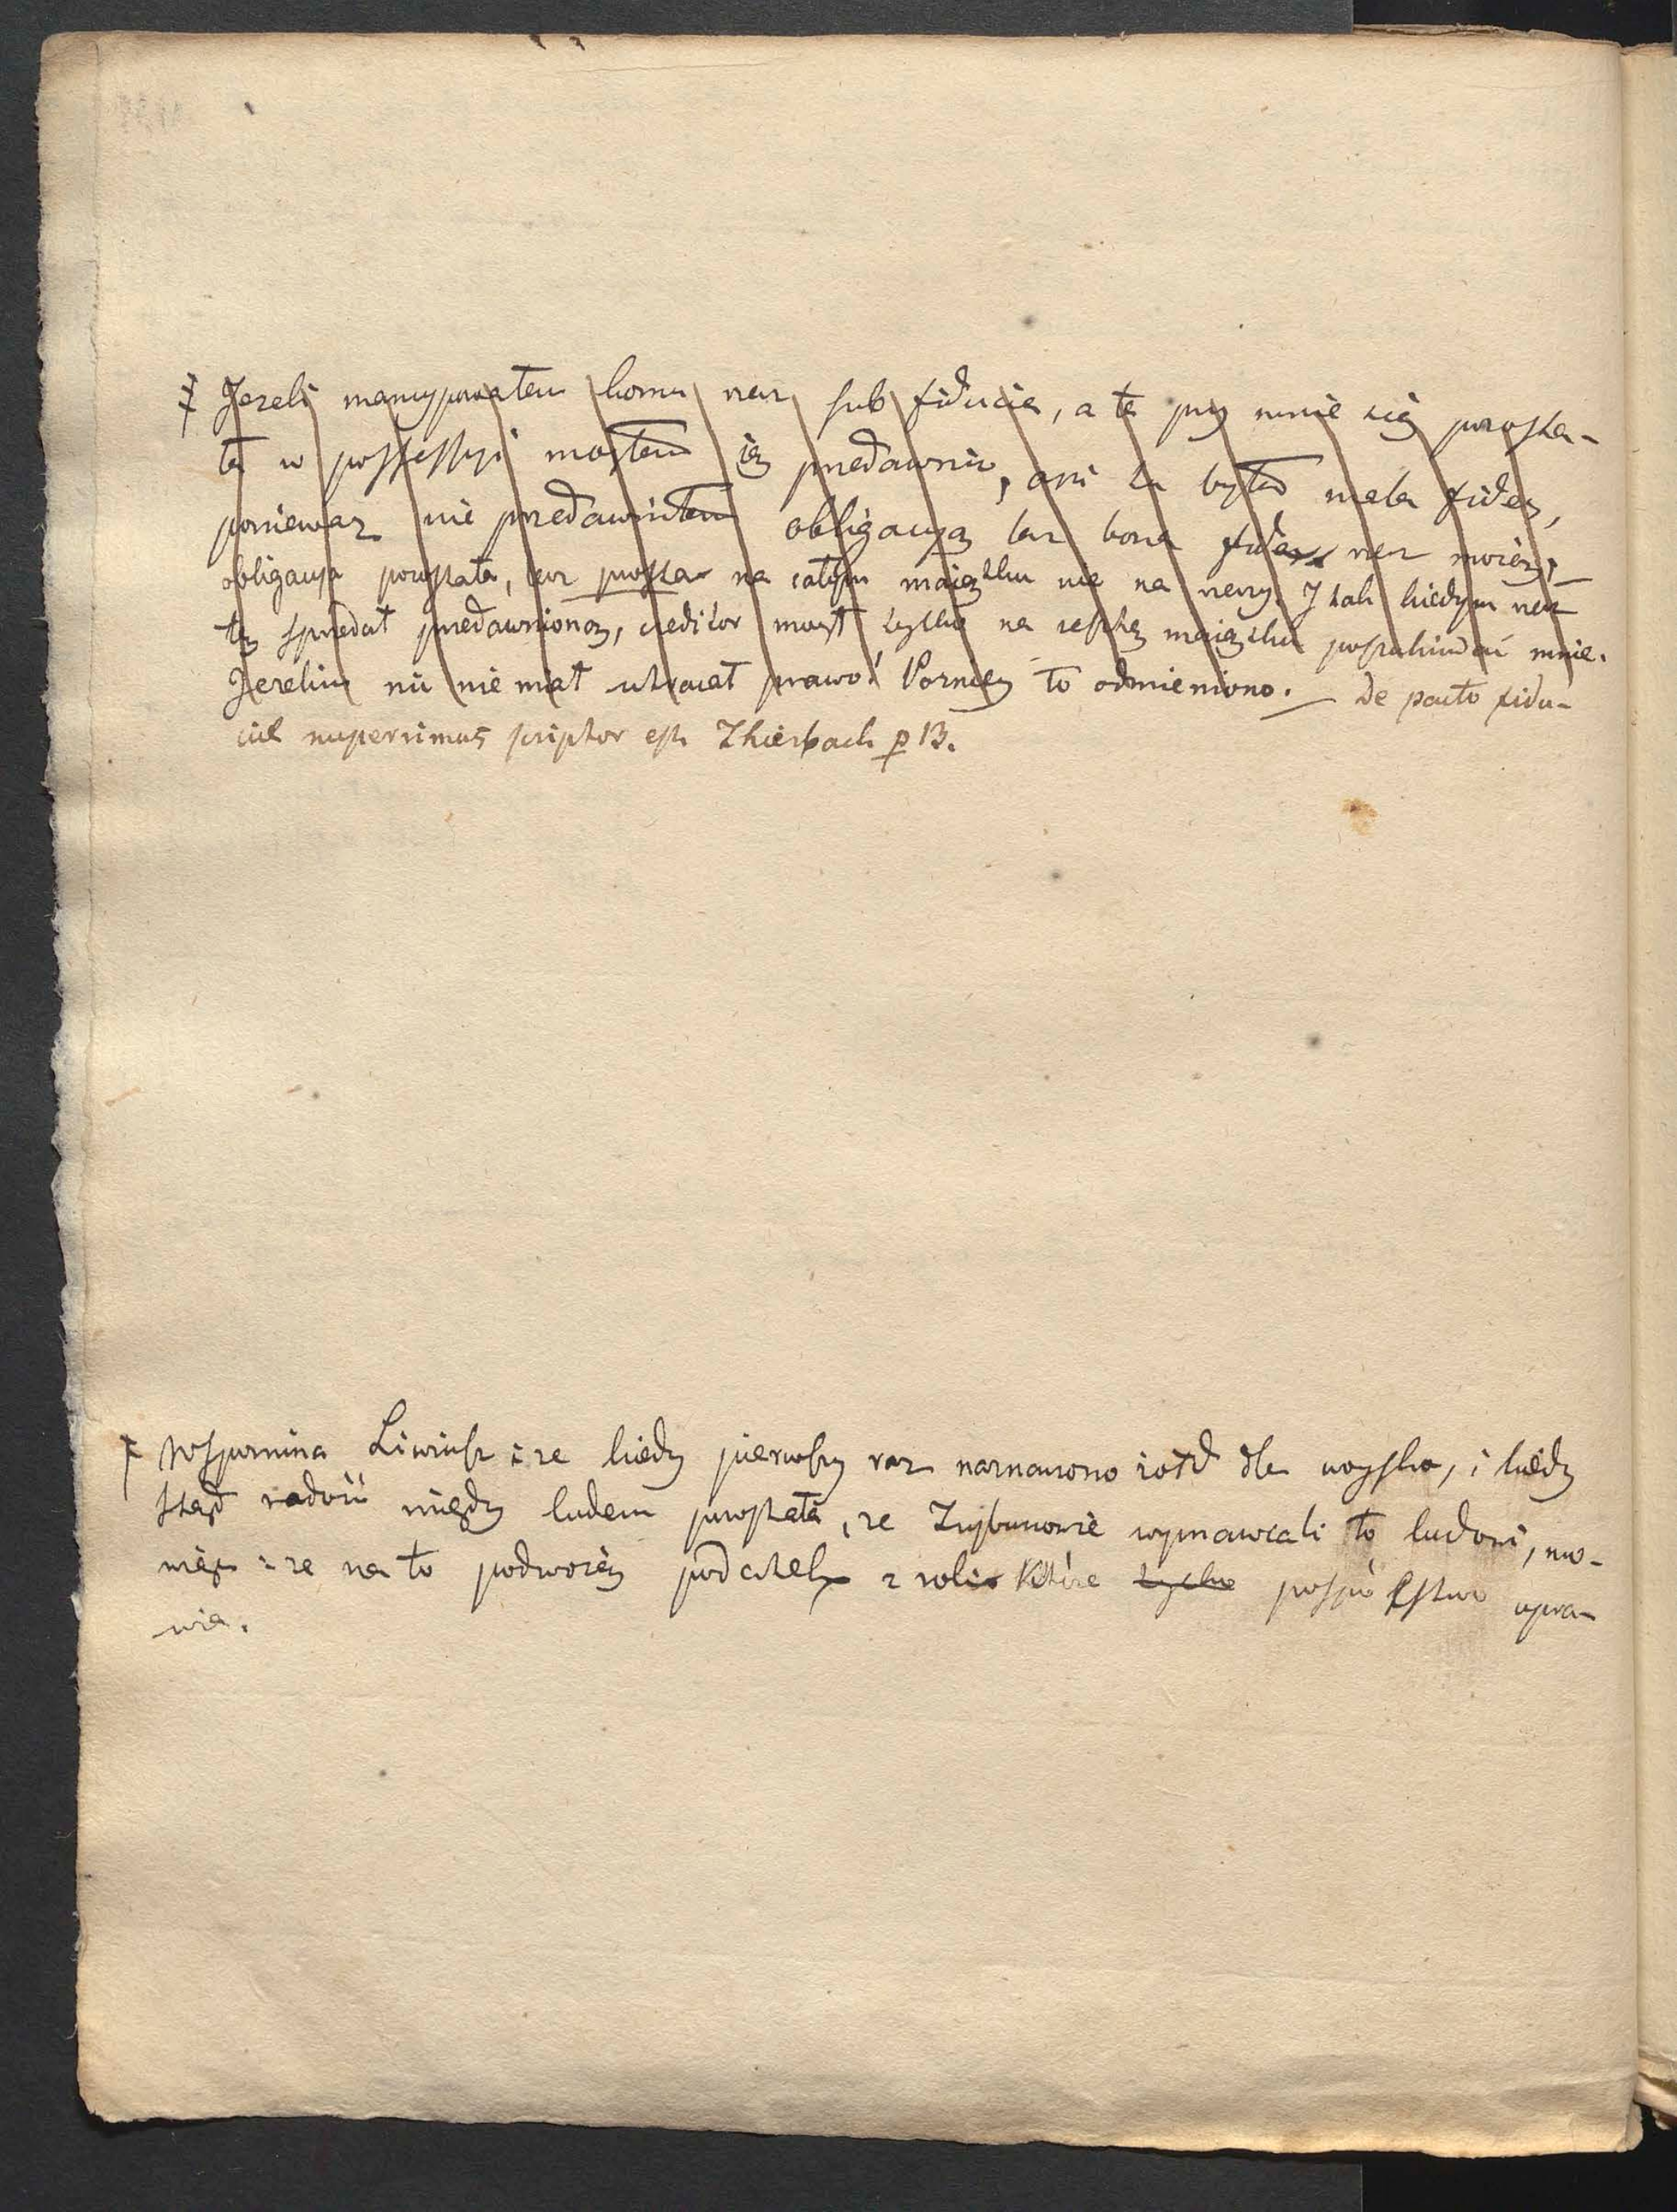 ‡ Jezeli mancypowałem komu rzecz sub fiducia, a ta przy mnie się pozosta-
ła w possessyi mogłem ią przedawnić, ani tu była mala fides,
ponieważ nie przedawniłem obligacyą lecz bona fide rzecz moią,
obligacya pozostała, lecz prosta na całym maiątku nie na rzeczy. J tak kiedym rzecz
tę sprzedał przedawnioną, creditor mógł tylko na resztę maiątku poszukiwać mnie.
Jeżelim nic nie miał utracał prawo! Pozniey to odmieniono. — De pacto fidu-
ciæ nuperrimus scriptor est Thierbach p 13.
‡ Wspomina Liwiusz : że kiedy pierwszy raz naznaczono żołd dla woyska, i kiedy
ztąd radość między ludem powstała, że Trybunowie wymawiali to ludowi, mó-
wiąc : że na to podwoień podatek z roli które tylko pospólstwo upra-
wia.